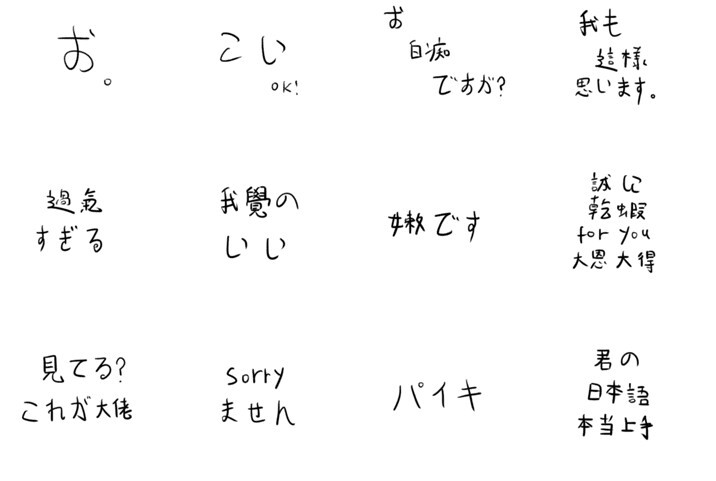 お。
こい
OK!
お
白痴
ですか?
我も
這樣
思います。
過氣
すぎる
我覺の
いい
嫩です
誠に
乾蝦
for you
大恩大得
見てる?
これが大佬
sorry
ません
パイキ
君の
日本語
本当上手